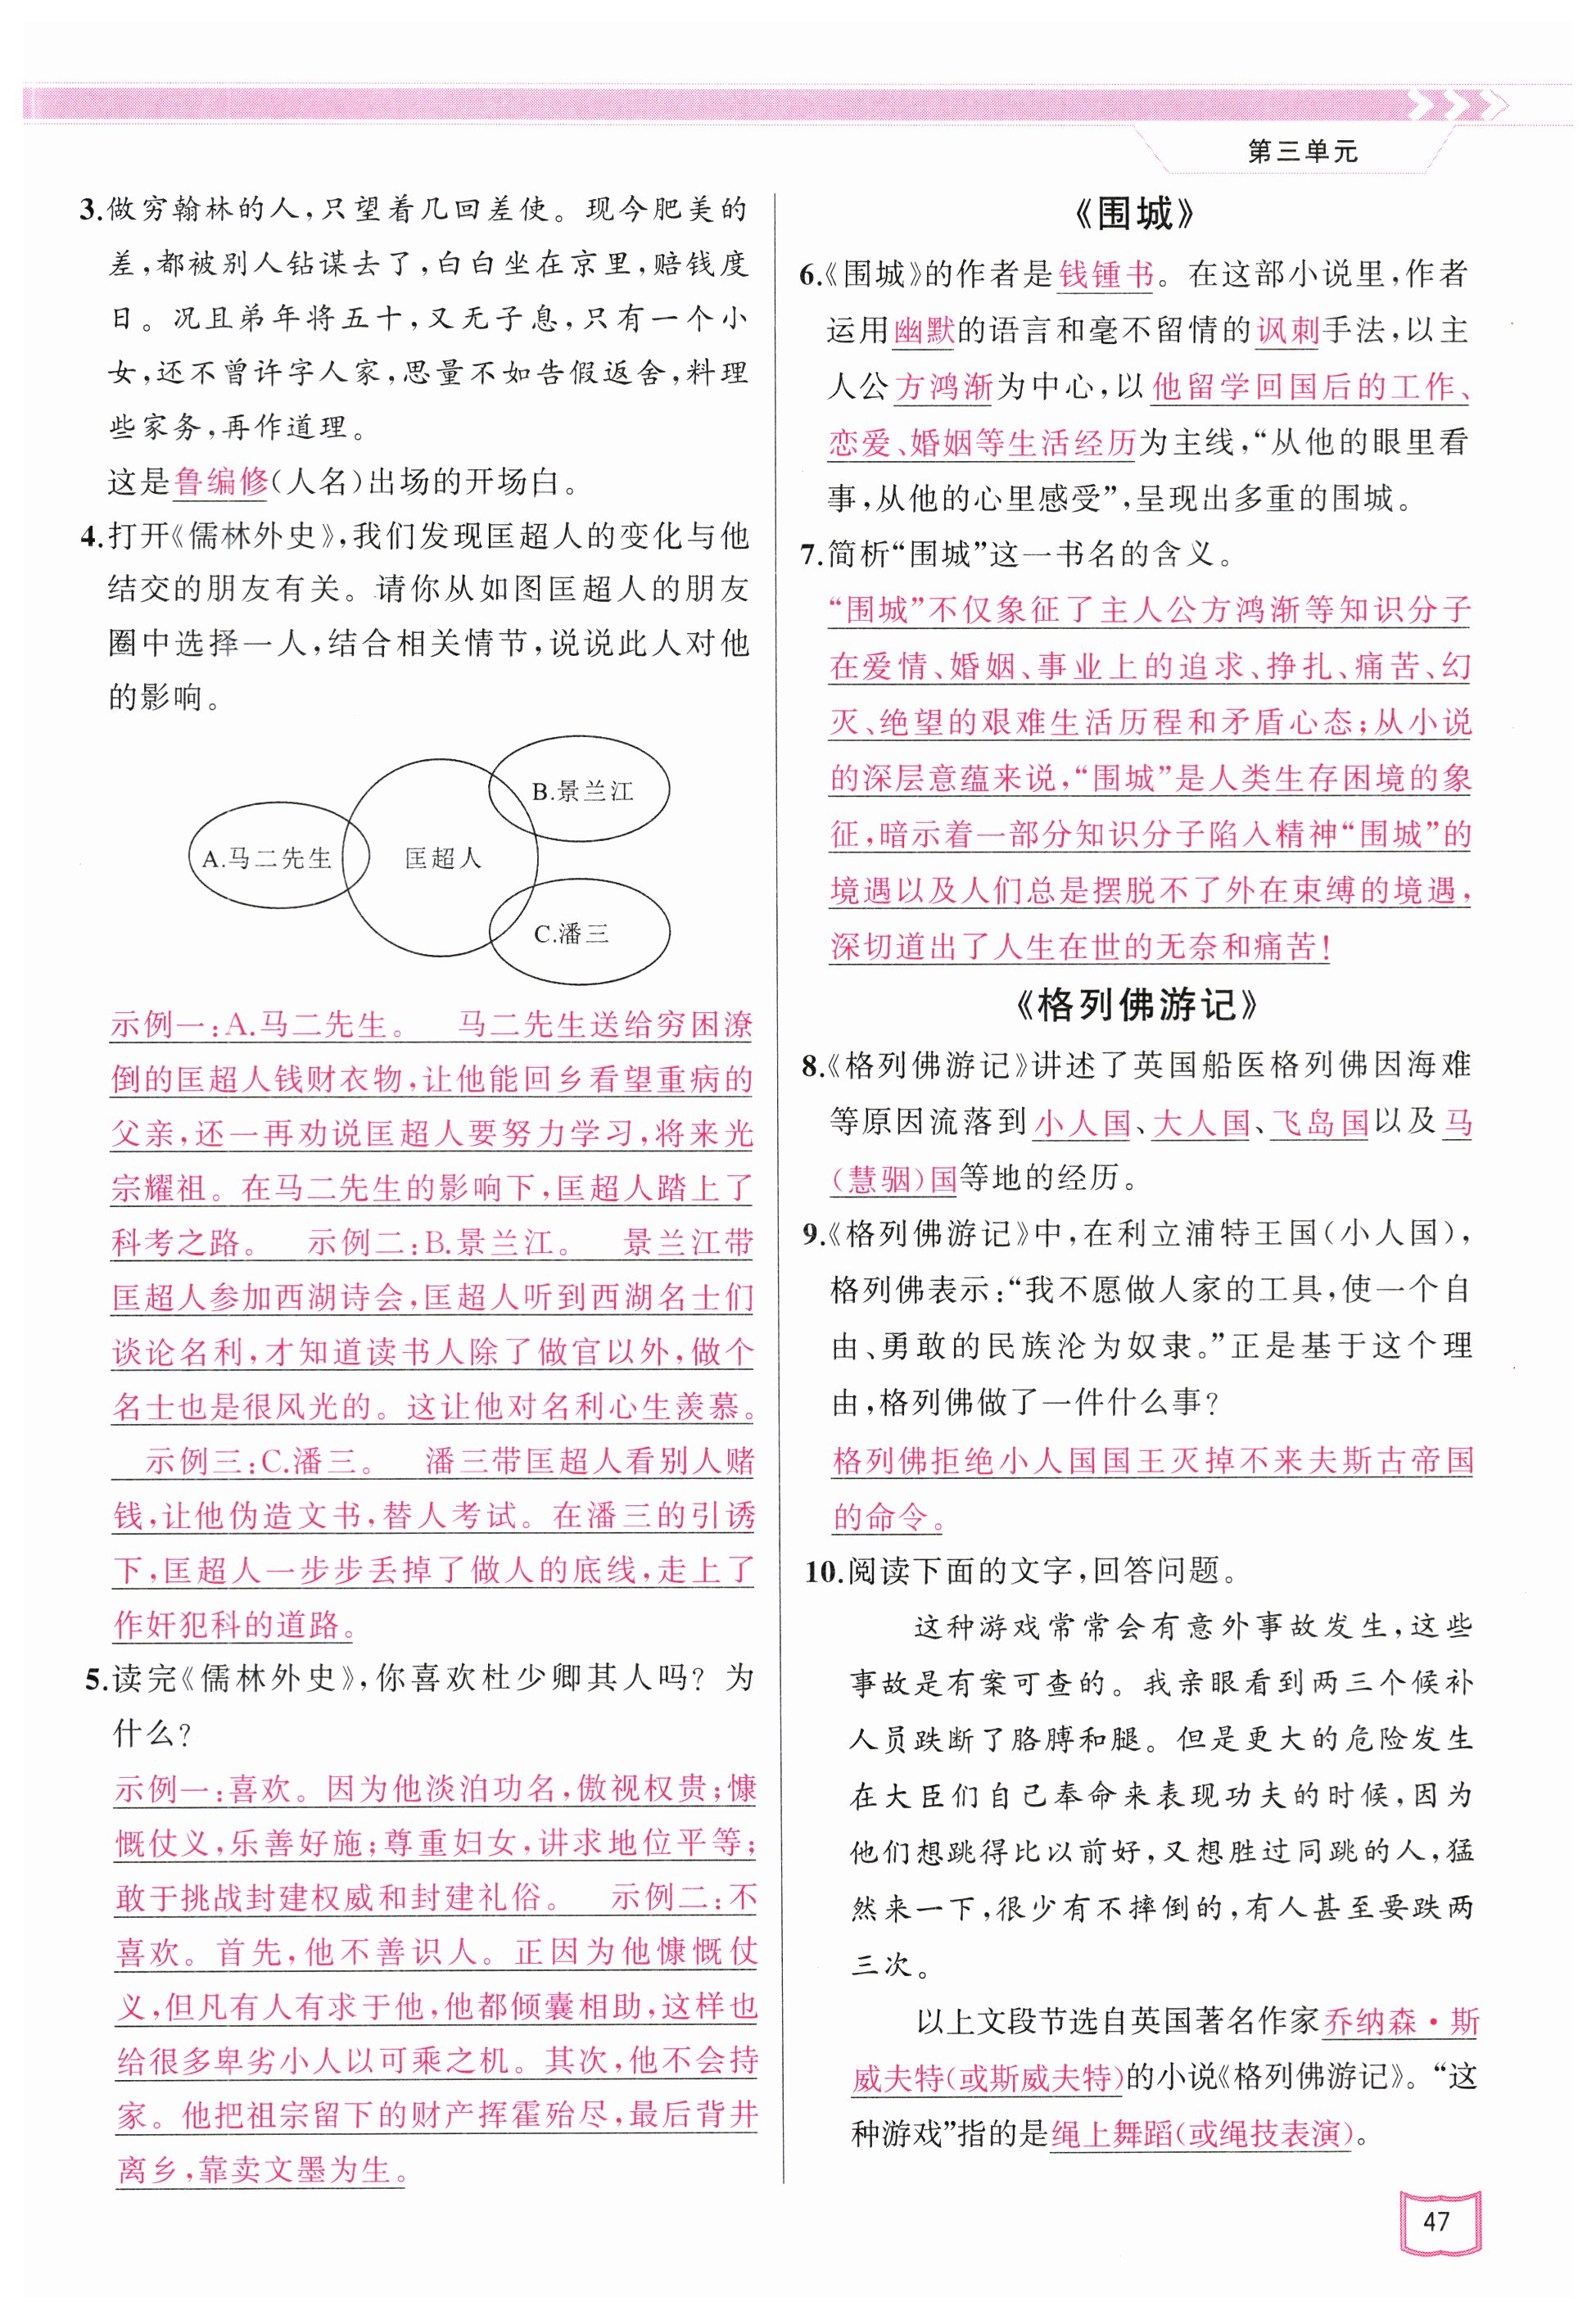 第三单元
3.做穷翰林的人,只望着几回差使。现今肥美的
差,都被别人钻谋去了,白白坐在京里,赔钱度
日。况且弟年将五十,又无子息,只有一个小
女,还不曾许字人家,思量不如告假返舍,料理
些家务,再作道理。
这是鲁编修(人名)出场的开场白。
4.打开《儒林外史》,我们发现匡超人的变化与他
结交的朋友有关。请你从如图匡超人的朋友
圈中选择一人,结合相关情节,说说此人对他
的影响。
B.景兰江
A.马二先生
匡超人
C.潘三
示例一:A.马二先生。 马二先生送给穷困潦
倒的匡超人钱财衣物,让他能回乡看望重病的
父亲,还一再劝说匡超人要努力学习,将来光
宗耀祖。在马二先生的影响下,匡超人踏上了
科考之路。 示例二:B.景兰江。 景兰江带
匡超人参加西湖诗会,匡超人听到西湖名士们
谈论名利,才知道读书人除了做官以外,做个
名士也是很风光的。这让他对名利心生羡慕。
示例三:C.潘三。 潘三带匡超人看别人赌
钱,让他伪造文书,替人考试。在潘三的引诱
下,匡超人一步步丢掉了做人的底线,走上了
作奸犯科的道路。
5.读完《儒林外史》,你喜欢杜少卿其人吗?为
什么?
示例一:喜欢。因为他淡泊功名,傲视权贵;慷
慨仗义,乐善好施;尊重妇女,讲求地位平等;
敢于挑战封建权威和封建礼俗。 示例二:不
喜欢。首先,他不善识人。正因为他慷慨仗
义,但凡有人有求于他,他都倾囊相助,这样也
给很多卑劣小人以可乘之机。其次,他不会持
家。他把祖宗留下的财产挥霍殆尽,最后背井
离乡,靠卖文墨为生。
《围城》
6.《围城》的作者是钱锺书。在这部小说里,作者
运用幽默的语言和毫不留情的讽刺手法,以主
人公方鸿渐为中心,以他留学回国后的工作、
恋爱、婚姻等生活经历为主线,“从他的眼里看
事,从他的心里感受”,呈现出多重的围城。
7.简析“围城”这一书名的含义。
“围城”不仅象征了主人公方鸿渐等知识分子
在爱情、婚姻、事业上的追求、挣扎、痛苦、幻
灭、绝望的艰难生活历程和矛盾心态;从小说
的深层意蕴来说,“围城”是人类生存困境的象
征,暗示着一部分知识分子陷入精神“围城”的
境遇以及人们总是摆脱不了外在束缚的境遇,
深切道出了人生在世的无奈和痛苦!
《格列佛游记》
8.《格列佛游记》讲述了英国船医格列佛因海难
等原因流落到小人国、大人国、飞岛国以及马
(慧骃)国等地的经历。
9.《格列佛游记》中,在利立浦特王国(小人国),
格列佛表示:“我不愿做人家的工具,使一个自
由、勇敢的民族沦为奴隶。”正是基于这个理
由,格列佛做了一件什么事?
格列佛拒绝小人国国王灭掉不来夫斯古帝国
的命令。
10.阅读下面的文字,回答问题。
这种游戏常常会有意外事故发生,这些
事故是有案可查的。我亲眼看到两三个候补
人员跌断了胳膊和腿。但是更大的危险发生
在大臣们自己奉命来表现功夫的时候,因为
他们想跳得比以前好,又想胜过同跳的人,猛
然来一下,很少有不摔倒的,有人甚至要跌两
三次。
以上文段节选自英国著名作家乔纳森·斯
威夫特(或斯威夫特)的小说《格列佛游记》。“这
种游戏”指的是绳上舞蹈(或绳技表演)。
47